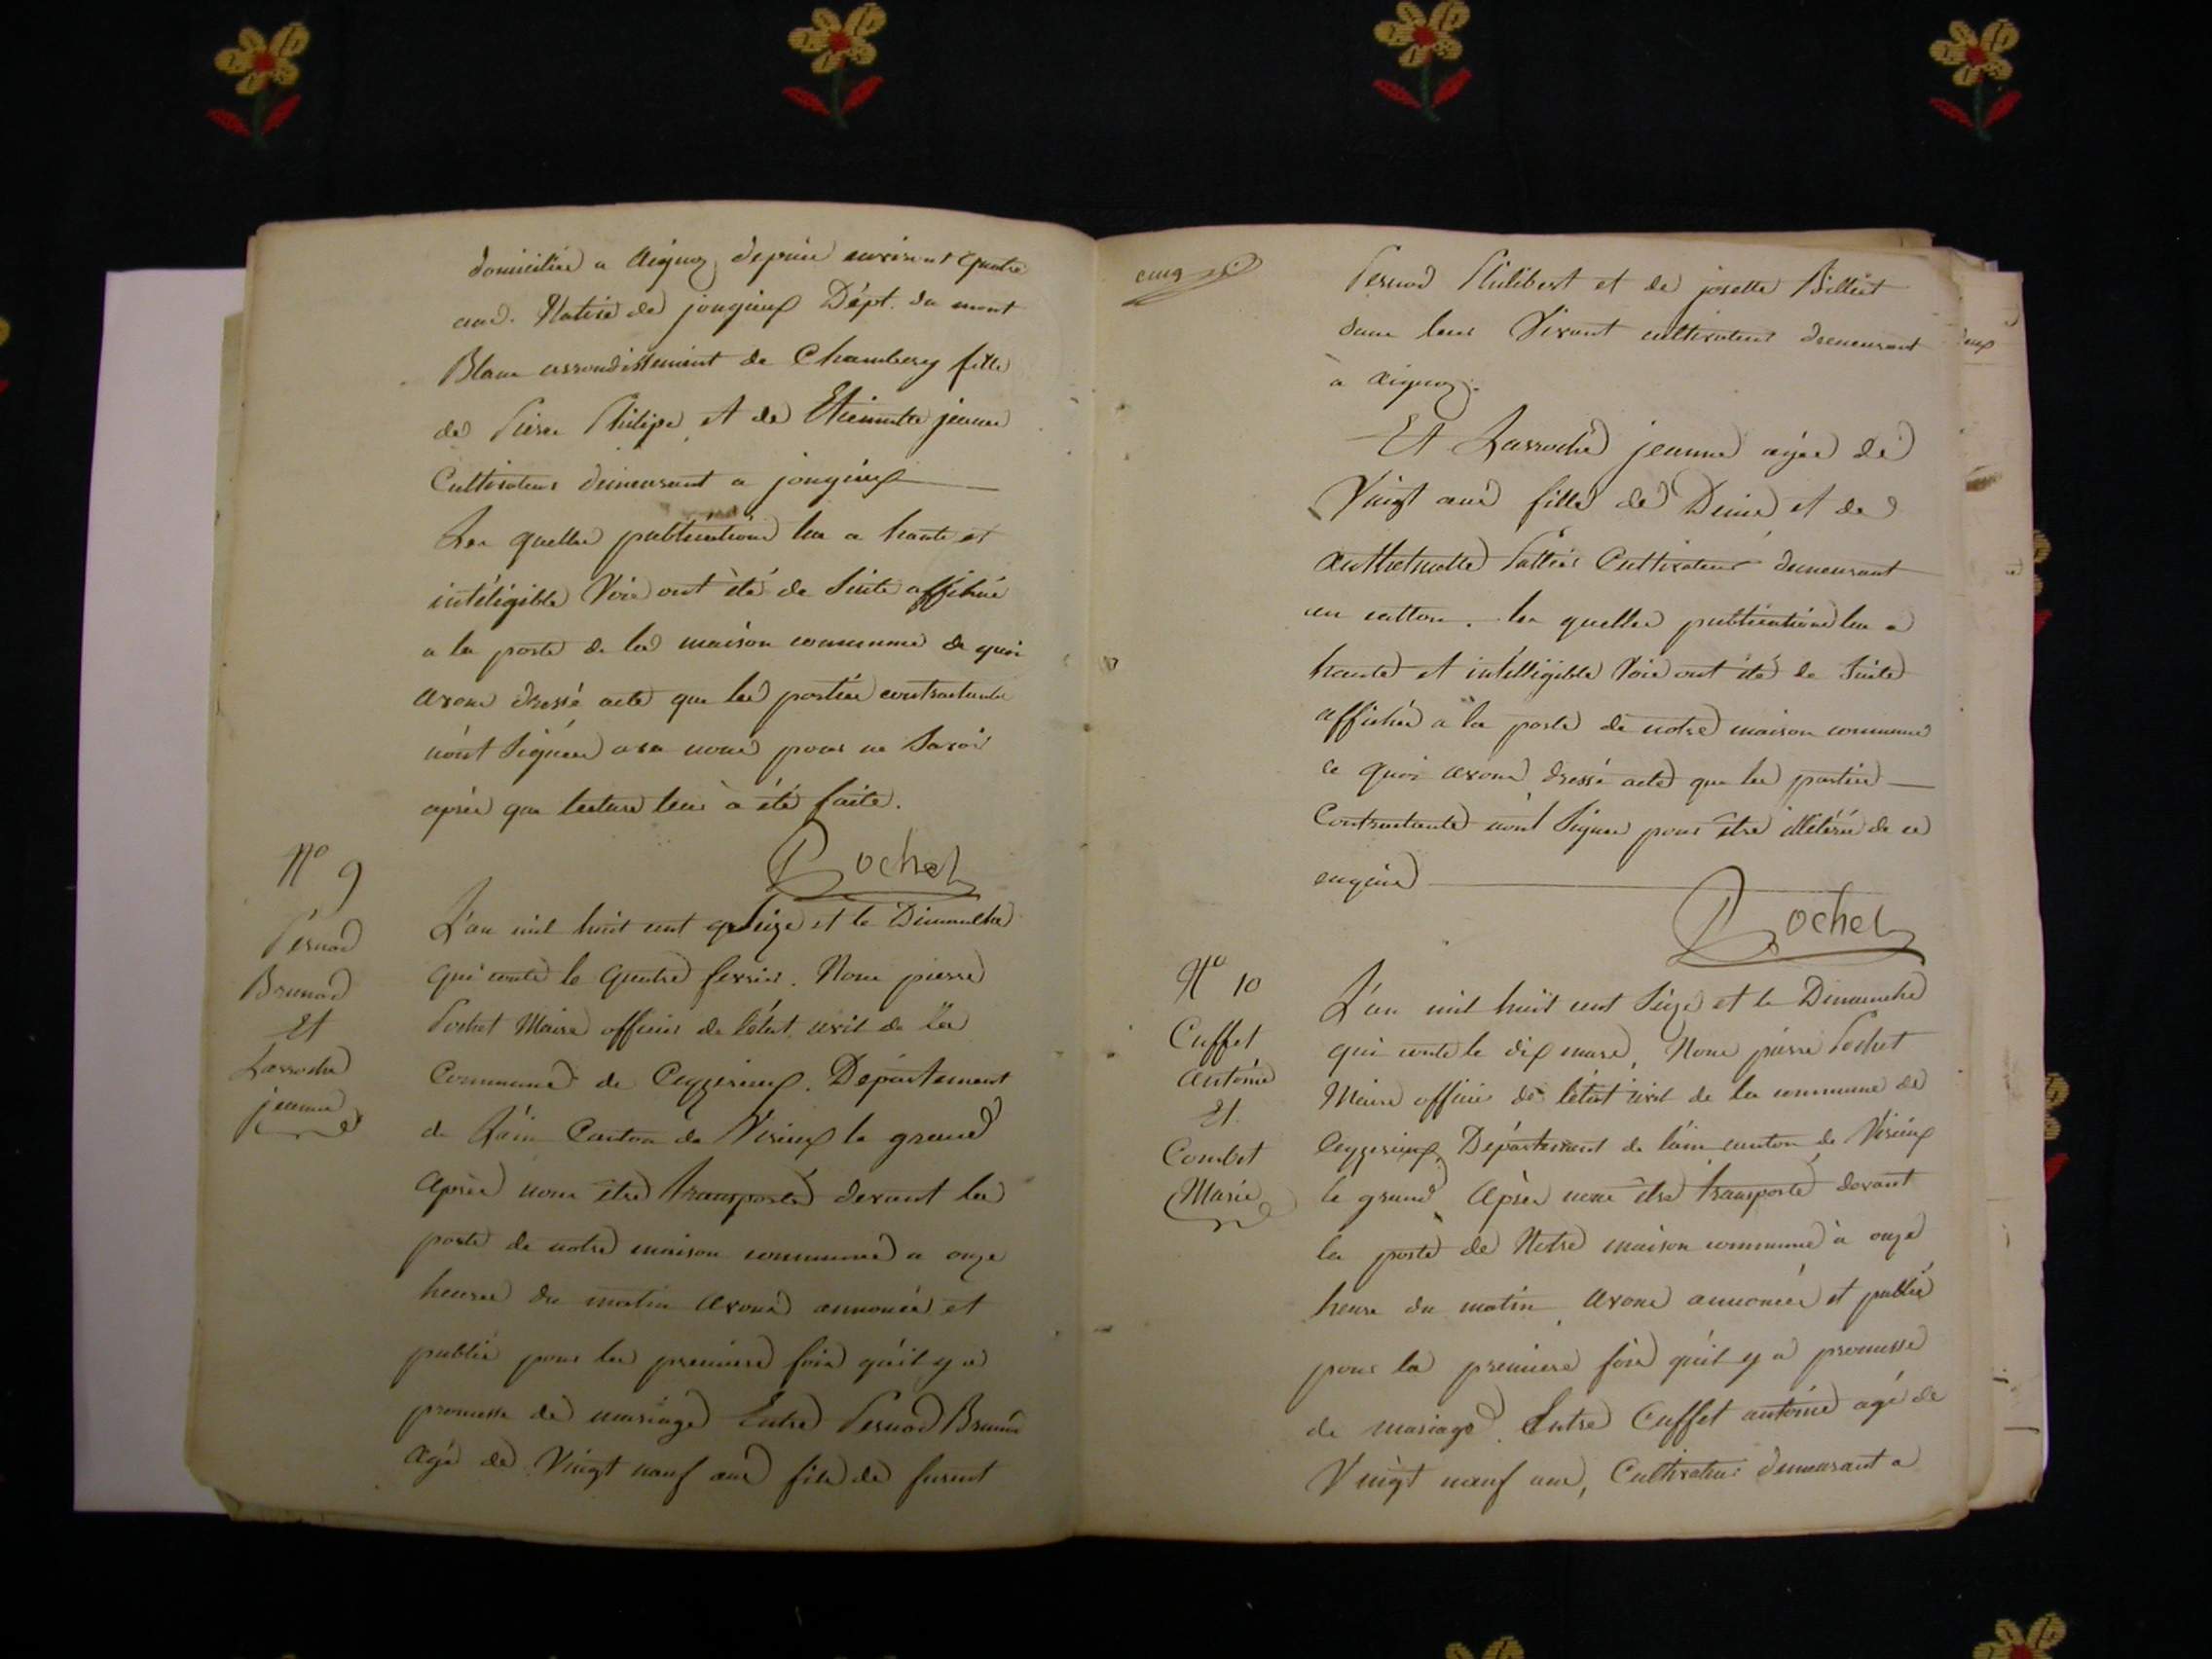 domiciliée a aignoz depuis environt quatre
ans. Native de jongieux Dépt. du mont
Blanc arrondissement de Chambery fille
de Pierre Philipe et de Etiennette jeanne
Cultivateurs demeurant a jongieux
Les quelles publications lue a haute et
intéligible Voix ont été de Suite affichée
a la porte de la maison commune de quoi
avons dressé acte que les parties contractante
n'ont Signées avec nous pour ne Savoir
après que lecture leur à été faite.
Pochet
N° 9
Pernod
Brunod
Et
Larroche
jeanne
L'an mil huit cent Seize et le Dimanche
qui conte le quatre fevrier. Nous pierre
Pochet Maire officier de l'état civil de la
Commune de Ceyzerieux. Département
de l'ain Canton de Virieux le grand
après nous être transporté devant la
porte de notre maison commune a onze
heures du matin avons annoncée et
publié pour la premiere fois qu'il y a
promesse de mariage Entre Pernod Brunod
agé de Vingt neuf ans fils de furent
cinq
Pernod Philibert et de josette Billiet
dans leur Vivant cultivateur demeurant
à aignoz.
Et Larroche jeanne agée de
Vingt ans fille de Denis et de
Cultivateur demeurant
au . les quelles publications lue a
haute et intélligible Voix ont été de Suite
affichée a la porte de notre maison commune
de quoi avons dressé acte que les parties
Contractante n'ont Signer pour être illétéré de ce
enquis
Pochet
N° 10
Cuffet
antoine
Et
Combet
Marie
L'an mil huit cent Seize et le Dimanche
qui conte le dix mars, Nous pierre Pochet
Maire officier de l'état civil de la commune de
Ceyzerieux, Département de l'ain canton de Virieux
le grand Après nous être transporté devant
la porte de Notre maison commune à onze
heure du matin, avons annoncée et publié
pour la premiere fois qu'il y a promesse
de mariage. Entre Cuffet antoine agé de
Vingt neuf ans, Cultivateur demeurant a